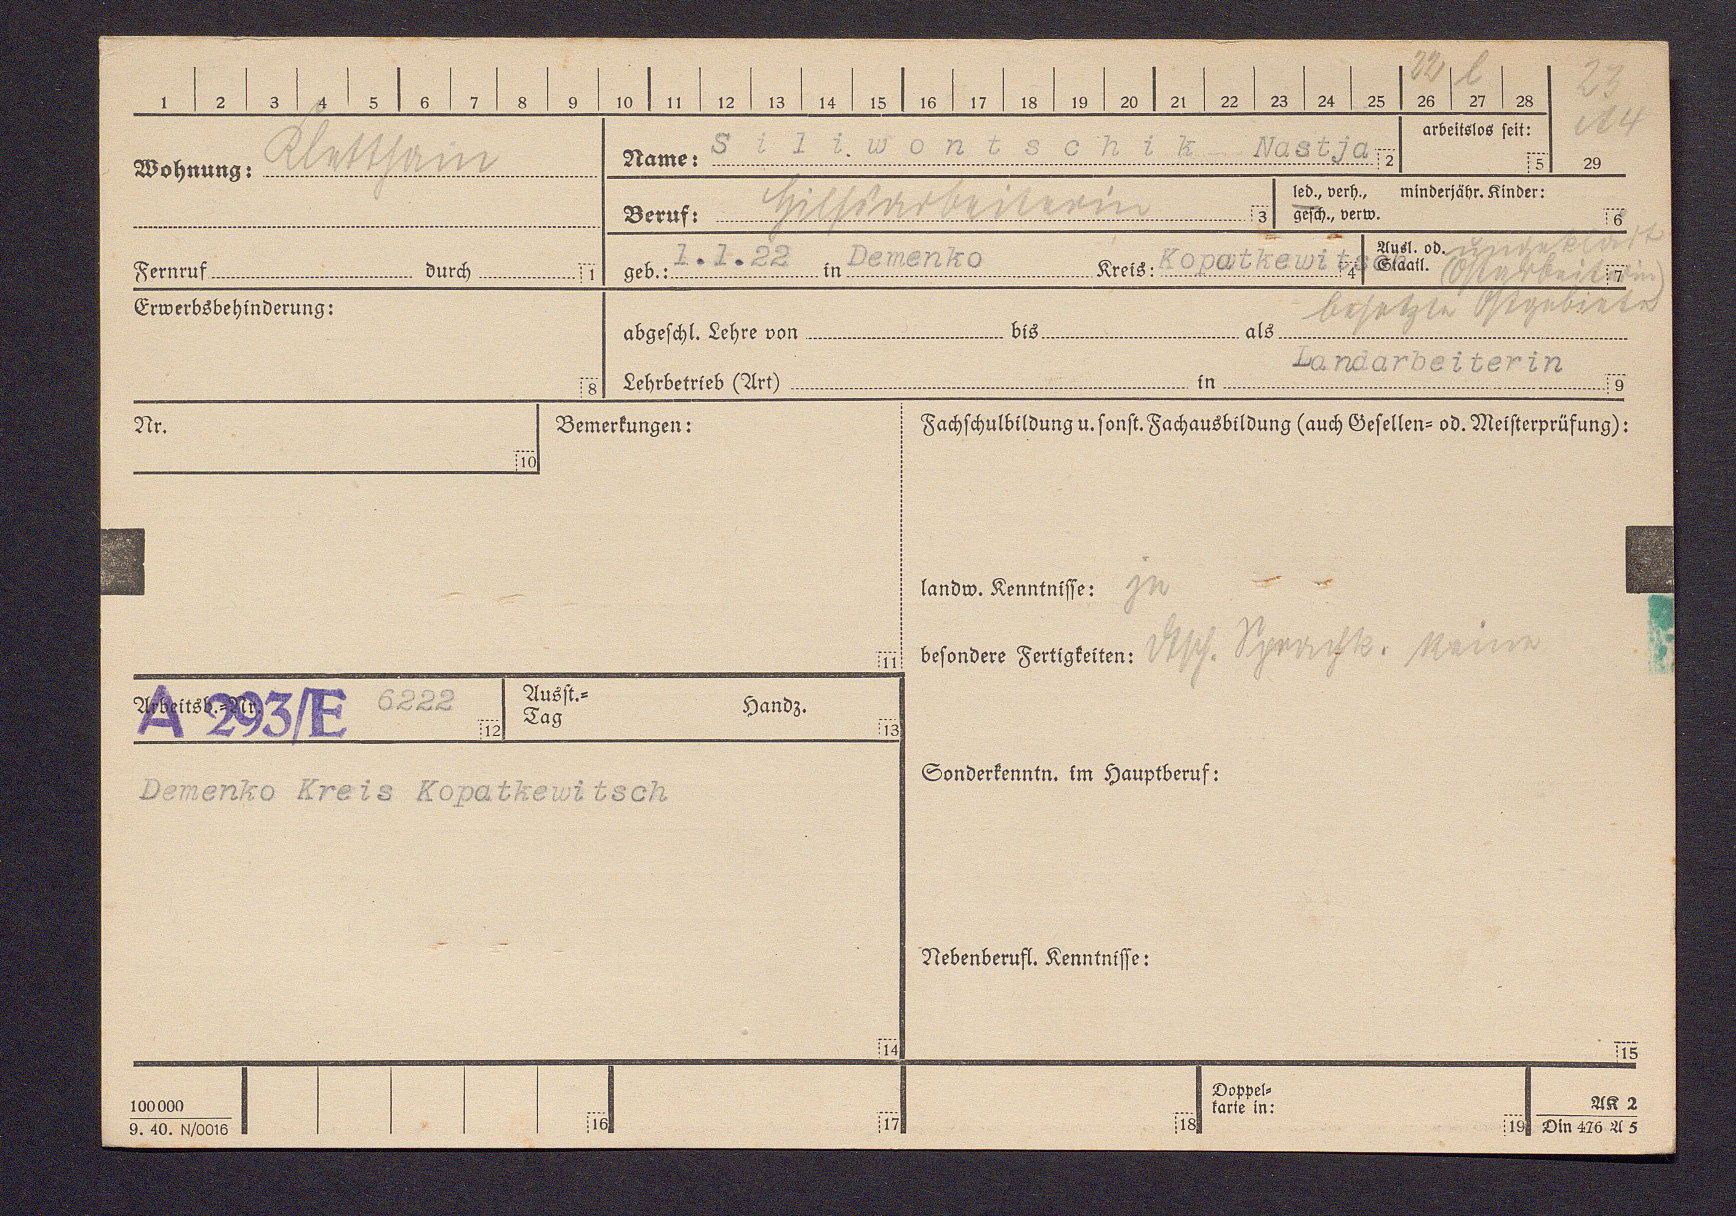 22 l 23
1 2 3 4 5 6 7 8 9 10 11 12 13 14 15 16 17 18 19 20 21 22 23 24 25 26 27 28
A4
Wohnung: Kletthain
Name: Siliwontschik Nastja 2
arbeitslos seit: 5
29
Beruf: Hilfsarbeiterin 3
led., verh., minderjähr. Kinder:
gesch., verw. 6
Fernruf durch 1
geb.: 1.1.22 in Demenko Kreis: Kopatkewitsch 4
Ausl. od. ungeklärt
Staatl. (Ostarbeiterin) 7
besetzte Ostgebiete
Erwerbsbehinderung: 8
abgeschl. Lehre von bis als
Landarbeiterin
Lehrbetrieb (Art) in 9
Nr. 10
Bemerkungen: 11
Fachschulbildung u. sonst. Fachausbildung (auch Gesellen- od. Meisterprüfung):
landw. Kenntnisse: ja
besondere Fertigkeiten: dtsch. Sprachk. keine
Arbeitsb.-Nr. A 293/E 6222 12
Ausst.-
Tag Handz. 13
Demenko Kreis Kopatkewitsch
14
Sonderkenntn. im Hauptberuf:
Nebenberufl. Kenntnisse:
15
100000
9. 40. N/0016
16 17 18
Doppel-
karte in: 19
AK 2
Din 476 A 5